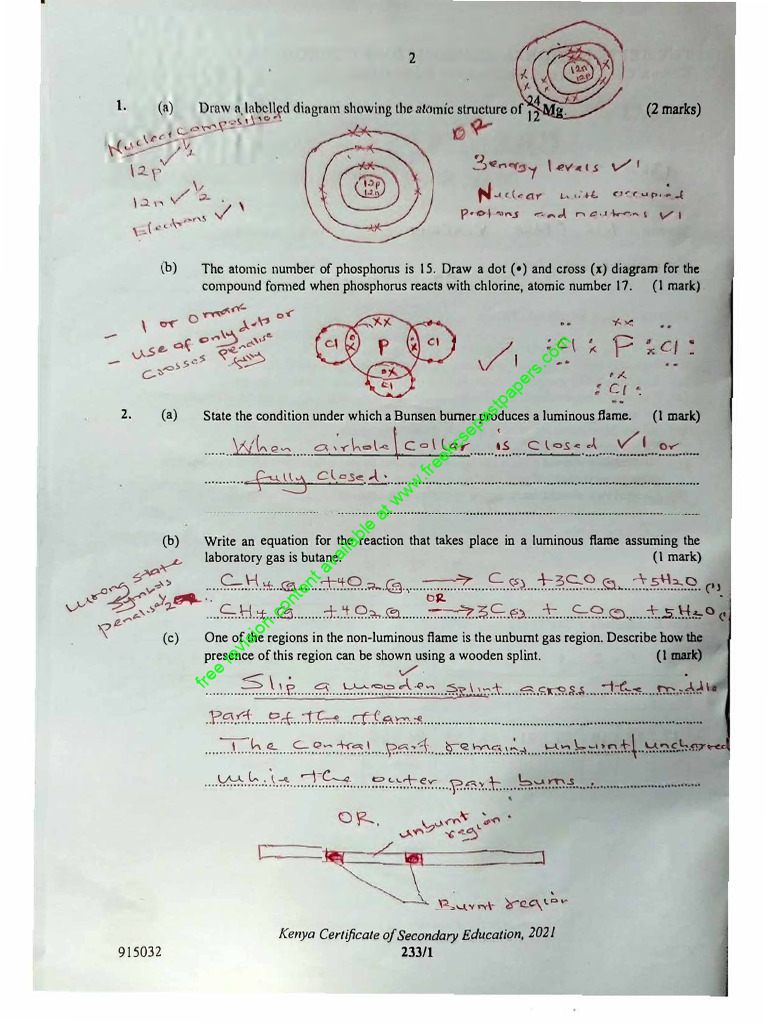 2
12n
12p
1. (a) Draw a labelled diagram showing the atomic structure of 24 12 Mg. (2 marks)
Nuclear Composition
OR
12p ✓ ½
12n ✓ ½
Electrons ✓ 1
12p
12n
3 energy levels ✓ 1
Nuclear with occupied
protons and neutrons ✓ 1
(b) The atomic number of phosphorus is 15. Draw a dot (•) and cross (x) diagram for the
compound formed when phosphorus reacts with chlorine, atomic number 17. (1 mark)
- 1 or 0 mark
- use of only dots or
crosses penalise
fully
Cl P Cl
Cl
✓ 1
Cl P Cl
Cl
2. (a) State the condition under which a Bunsen burner produces a luminous flame. (1 mark)
When airhole/collar is closed ✓ 1 or
fully closed.
(b) Write an equation for the reaction that takes place in a luminous flame assuming the
laboratory gas is butane. (1 mark)
wrong state
symbols
penalise ½
CH4 (g) + 4O2 (g) → C(s) + 3CO (g) + 5H2O (l)
OR
CH4 (g) + 4O2 (g) → 3C(s) + CO (g) + 5H2O (
(c) One of the regions in the non-luminous flame is the unburnt gas region. Describe how the
presence of this region can be shown using a wooden splint. (1 mark)
Slip a wooden splint across the middle
part of the flame
The central part remains unburnt/uncharred
while the outer part burns.
OR.
unburnt
region.
Burnt region
Kenya Certificate of Secondary Education, 2021
915032
233/1
free revision content available at www.freekcsepastpapers.com